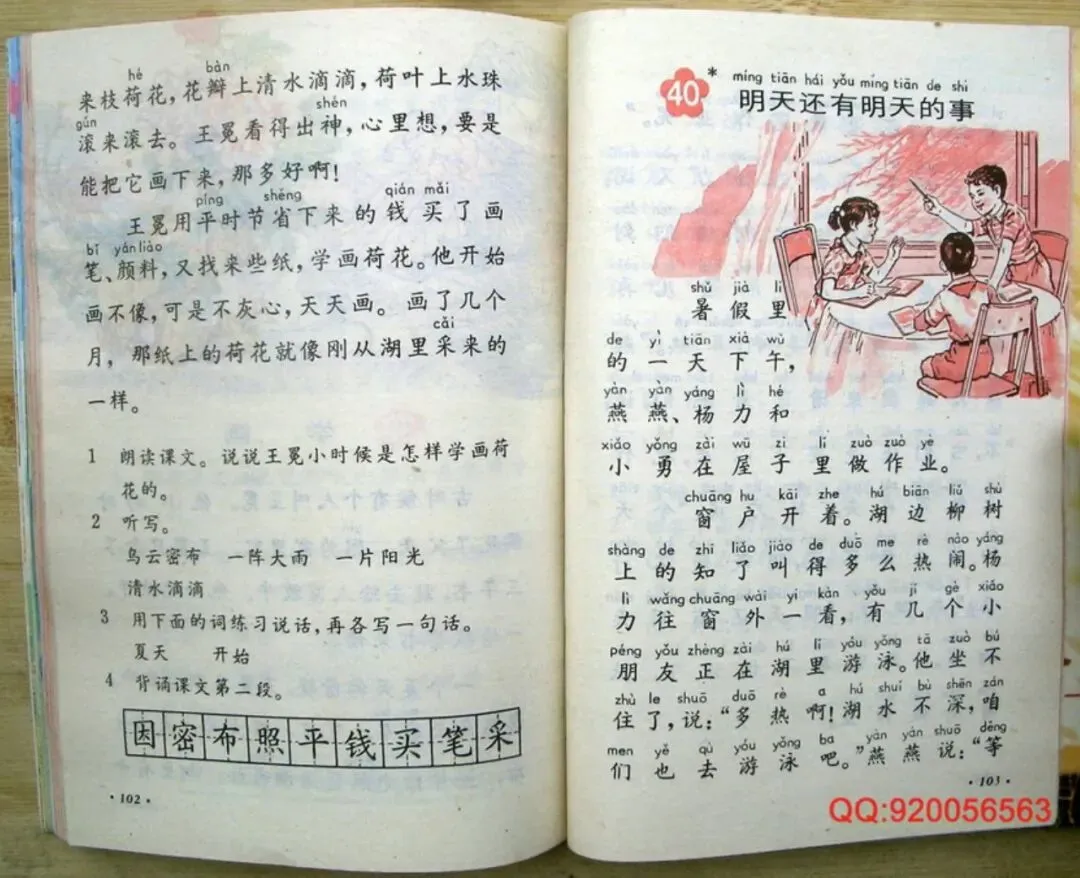 hé bàn
来枝荷花，花瓣上清水滴滴，荷叶上水珠
gǔn shén
滚来滚去。王冕看得出神，心里想，要是
能把它画下来，那多好啊！
píng shěng qián mǎi
王冕用平时节省下来的钱买了画
bǐ yán liào
笔、颜料，又找来些纸，学画荷花。他开始
画不像，可是不灰心，天天画。画了几个
cǎi
月，那纸上的荷花就像刚从湖里采来的
一样。
1 朗读课文。说说王冕小时候是怎样学画荷
花的。
2 听写。
乌云密布 一阵大雨 一片阳光
清水滴滴
3 用下面的词练习说话，再各写一句话。
夏天 开始
4 背诵课文第二段。
因密布照平钱买笔采
·102·
míng tiān hái yǒu míng tiān de shì
40* 明天还有明天的事
shǔ jià lǐ
暑假里
de yì tiān xià wǔ
的一天下午，
yàn yàn yáng lì hé
燕燕、杨力和
xiǎo yǒng zài wū zi lǐ zuò zuò yè
小勇在屋子里做作业。
chuāng hu kāi zhe hú biān liǔ shù
窗户开着。湖边柳树
shàng de zhī liǎo jiào de duō me rè nào yáng
上的知了叫得多么热闹。杨
lì wǎng chuāng wài yí kàn yǒu jǐ gè xiǎo
力往窗外一看，有几个小
péng yǒu zhèng zài hú lǐ yóu yǒng tā zuò bú
朋友正在湖里游泳。他坐不
zhù le shuō duō rè a hú shuǐ bù shēn zán
住了，说：“多热啊！湖水不深，咱
men yě qù yóu yǒng ba yàn yàn shuō děng
们也去游泳吧。”燕燕说：“等
·103·
QQ:920056563